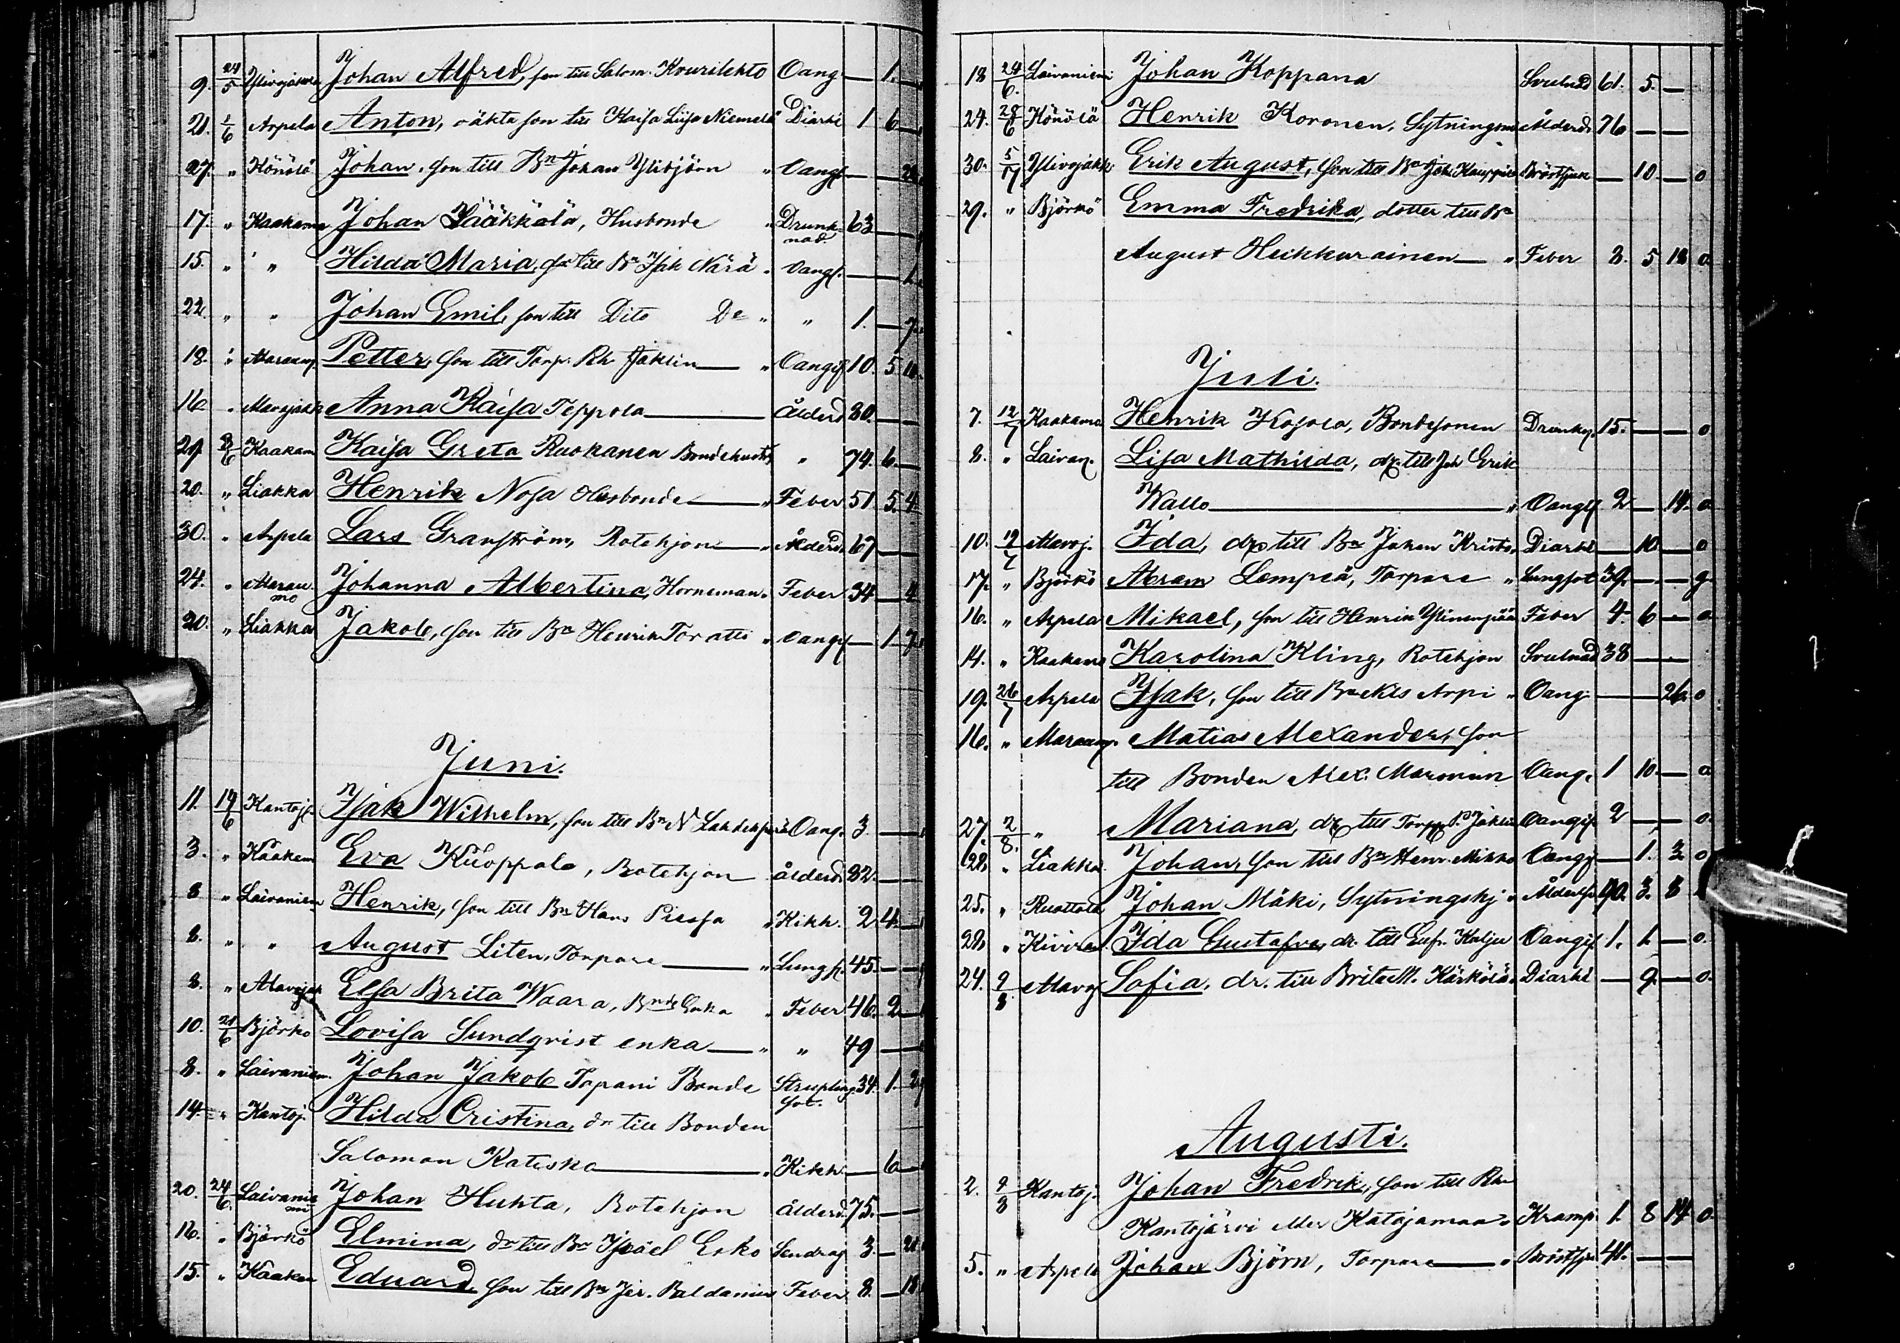 9. 24/5 Ylivojakka Johan Alfred, son till Salom. Kourilehto Oang — 1. —
21. 1/6 Arpela Anton, oäkta son till Kaisa Liisa Niemelä Diarhé 1 6 —
27. " Könölä Johan, son till Bn Johan Ylibjörn " Oangf —
17. " Kaakama Johan Lääkkölä, Husbonde " Drunk-
nad 63 —
15. " " Hilda Maria, dr till Bn Isak Närä " Oangf. —
22. " " Johan Emil, son till Dito Do " " 1. — 7.
18. " Petter, son till Torp. Joklin — " Oangif 10. 5
16 " Anna Kaisa Teppola — Ålderd. 80. —
29 8/6 Kaakam Kaisa Greta Ruokanen Bondehustr. " 74. 6 —
20. " Liakka Henrik Nosa Husbonde — " Feber 51. 5. 4
30. " Arpela Lars Granström, Rotehjon — " Ålderd. 67 —
24. " Johanna Albertina Horneman. " Feber 34 — 4
20. " Liakka Jakob, son till Bn Henrik Toratti " Oangf — 1 7
Juni.
11. 14/6 Kantojf. Isak Wilhelm, son till Bn N Lahdenperä Oang. 3. —
3. " Kaakam Eva Kuoppala, Rotehjon ålderd. 82. —
8 " Laivaniem Henrik, son till Bn Hans " Kikh. 2 4 —
8. " " August Liten, Torpare — " Lungs. 45. —
8. " Elsa Brita Waara, Bnde Enka " Feber 46. 2 —
10. 21/6 Björkö Lovisa Sundqvist enka — " " 49 —
8. " Laivaniem. Johan Jakob Tapani Bonde Strupling
sot. 34. 1. 2
14. " Kantoj. Hilda Cristina, dr till Bonden
Salomon Katiska — " Kikh. — 6 —
20. 24/6 Laivanie
mi Johan Huhta, Rotehjon ålderd. 75. —
16. " Björkö Elmina, dr till Bn Israel Erko Lendrag 3 —
15. " Kaakam Eduard, son till Bn Jer. Baldanius Feber 8. — 18
18 24/6. Laivaniemi Johan Koppana Svulnad 61. 5. —
24. 28/6 Könölä Henrik Koronen, Sytningsm Ålderd. 76 — —
30. 5/7 Ylivojakk. Erik August, son till Bn Joh. Kauppila Bröstsjuk — 10 — o
29. " Björkö Emma Fredrika, dotter till Bn
August Heikkurainen — " Feber 2. 5 18 o
Juli.
7. 12/7 Kaakama Henrik Hosola, Bondesonen Drunkn. 15. — — o
8. " Laivan. Lisa Mathilda, dr. till Joh Erik
Wallo — " Oangif 2 — 14. o
10. 19/7 Ida, dr till Bn Johan Kristo, Diarhé — 10 — o
17. " Björkö Abram Lempeä, Torpare " Lungsot 39. — — g
16. " Arpela Mikael, son till Henrik Ylinenpää Feber 4 6 — o
14. " Kaakama Karolina Kling, Rotehjon Svulnad 38 — —
19. 26/7 Arpela Isak, son till Bn Arpi " Oang. — — 26. o
16. " Matias Alexander, son
till Bonden Alex. Marmun Oang. 1 10. — o
27. 2/8. " Mariana, dr till Torpp. Joklin Oangif 2 — — o.
28. " Liakka Johan, son till Bn Henr. Mikko Oangf — 1. 3. o
25. " Ruottala Johan Mäki, Sytningshj " Ålderd. 90. 3. 8
28. " Ida Gustafva, dr till Eufr. Kalju Oangif 1. 1. — o.
24. 9/8 Sofia, dr. till Brita M. Kärkölä. Diarhé — 9 — o.
Augusti.
2. 9/8 Kantoj. Johan Fredrik, son till
Kantojärvi eller Katajamaa " Kramp. 1. 8 14 o
5. " Arpela Johan Björn, Torpare — " Bröstsju. 41. — —